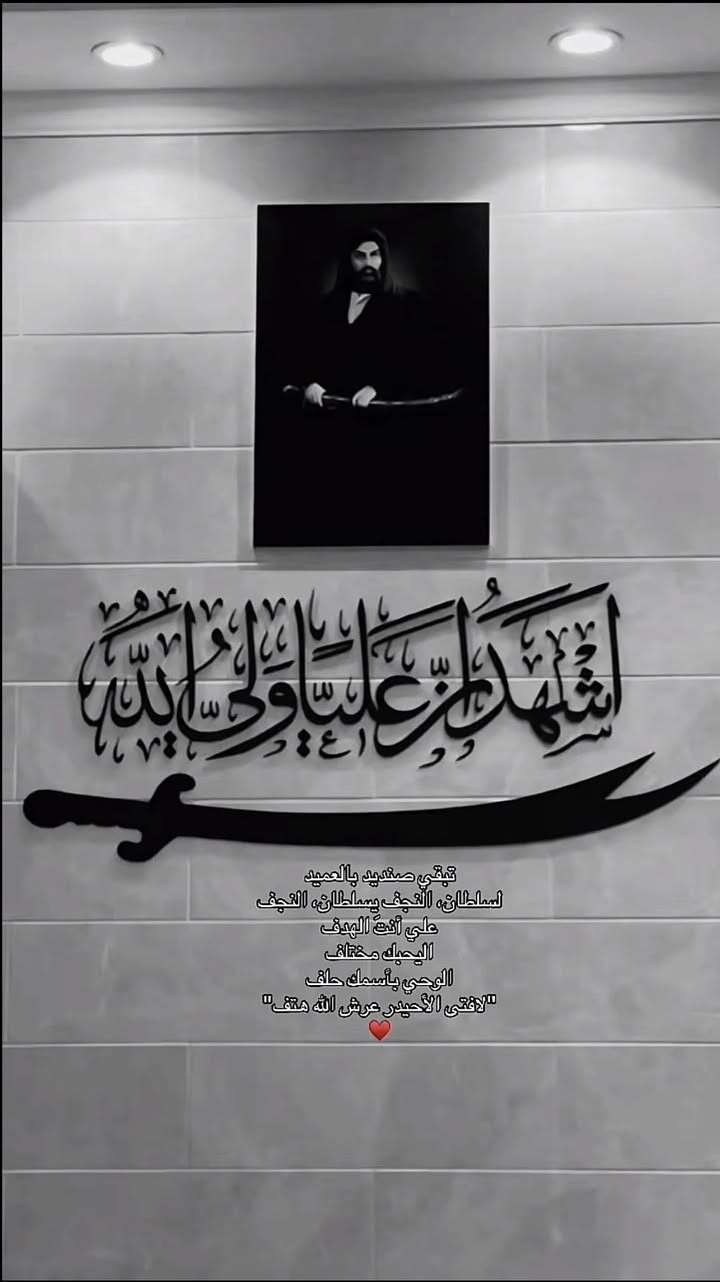 اشهد ان علیًا ولی الله
تبقي صنديد بالعميد
لسلطان، النجف يسلطان، النجف
علي أنتَ الهدف
اليحبك مختلف
الوحي بأسمك حلف
"لافتى الأحيدر عرش الله هتف"
♥️